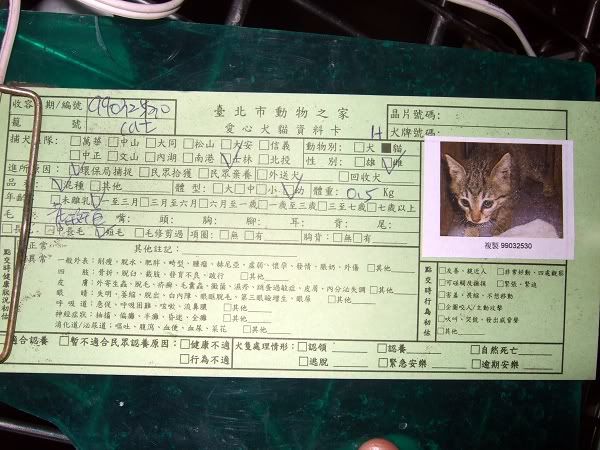 收容日期/編號 99032530 臺北市動物之家 晶片號碼:
籠 號 cat 愛心犬貓資料卡 H 犬牌號碼:
捕犬 隊: □萬華 □中山 □大同 □松山 □大安 □信義 動物別: □犬 ■貓
□中正 □文山 □內湖 □南港 □士林 □北投 性 別: □雄 □雌
進所原因: □環保局捕捉 □民眾拾獲 □民眾棄養 □外送犬 □回收犬
品 種: □混種 □其他 體 型: □大 □中 □小 □幼 體重: 0.5 Kg
年齡: □未離乳 □一至三月 □三月至六月 □六月至一歲 □一歲至三歲 □三歲至七歲 □七歲以上
毛 嘴: 頭: 胸: 腳: 耳: 背: 尾:
□中長毛 □短毛 □毛修剪過 項圈: □無 □有 胸背: □無 □有
複製 99032530
點交時健康狀況初估
正常 其他註記:
異常 一般外表: 削瘦、脫水、肥胖、畸型、腫瘤、赫尼亞、虛弱、懷孕、發情、脹奶、外傷 □其他
四 肢: 骨折、脫臼、截肢、發育不良、跛行 □其他
皮 膚: 外寄生蟲、脫毛、疥癬、毛囊蟲、黴菌、濕疹、跳蚤過敏症、皮屑、內分泌失調 □其他
眼 睛: 失明、萎縮、脫出、白內障、眼瞼脫毛、第三眼瞼增生、眼屎 □其他
呼吸道: 急促、呼吸困難、咳嗽、流鼻膿 □其他
神經症狀: 抽搐、偏癱、半癱、昏迷、全癱 □其他
消化道/泌尿道: 嘔吐、腹瀉、血便、血尿、菜花 □其他
點交時行為初估
□友善、親近人 □非常好動、四處觀察
□可碰觸及擁抱 □緊張、緊迫
□害羞、畏縮、不想移動
□企圖咬人/主動攻擊
□吠叫、哭號、發出威脅聲
□其他
適合認養 □暫不適合民眾認養原因: □健康不適 犬隻處理情形: □認領 □認養 □自然死亡
□行為不適 □逃脫 □緊急安樂 □逾期安樂